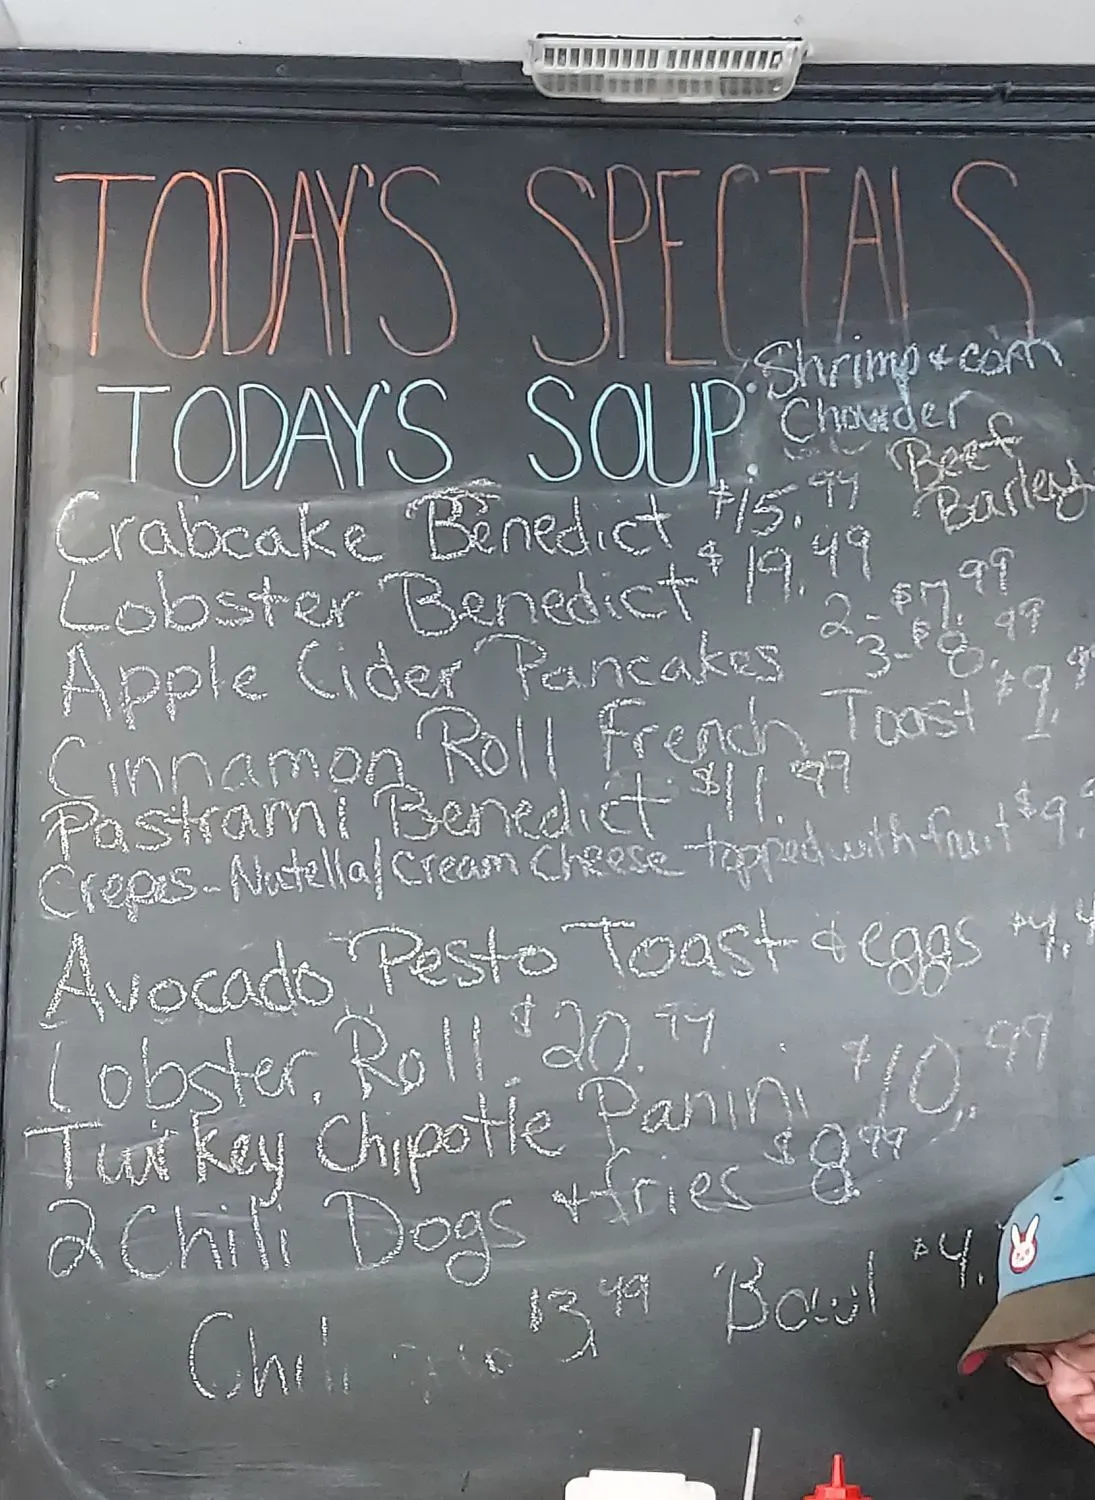 TODAY'S SPECIALS
TODAY'S SOUP: Shrimp & corn
Chowder
Beef
Barley
Crabcake Benedict $15.99
Lobster Benedict $19.49
Apple Cider Pancakes 2-$7.99
3-$8.99
Cinnamon Roll French Toast $9.99
Pastrami Benedict $11.49
Crepes-Nutella/Cream Cheese topped with fruit $9.
Avocado Pesto Toast & eggs
Lobster Roll $20.99
Turkey Chipotle Panini $10.99
2 Chili Dogs & fries $8.99
Chili Bowl $4.